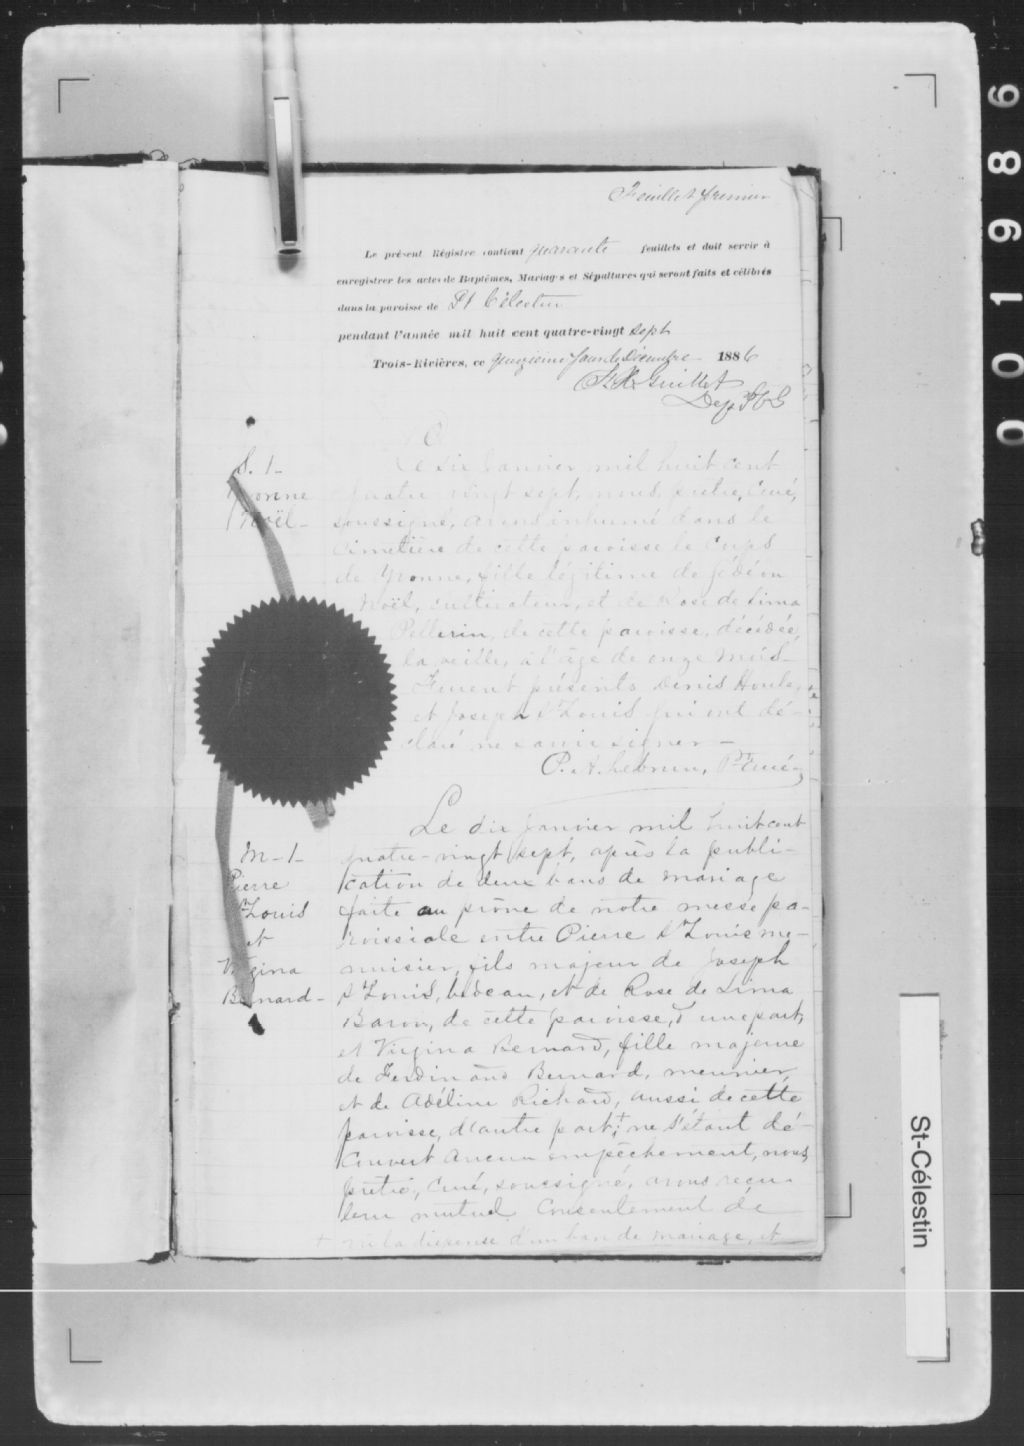 Feuillet premier
Le présent Régistre contient quarante feuillets et doit servir à
enregistrer les actes de Baptêmes, Mariages et Sépultures qui seront faits et célébrés
dans la paroisse de St Célestin
pendant l'année mil huit cent quatre-vingt sept
Trois-Rivières, ce jour de Décembre 1886
Guillet
Dep
S. 1-
Yvonne
Noël-
Le dix Janvier mil huit cent
quatre vingt sept, nous, prêtre, Curé,
soussigné, avons inhumé dans le
cimetière de cette paroisse le corps
de Yvonne, fille légitime de Gédéon
Noël, cultivateur, et de Rose de Lima
Pellerin, de cette paroisse, décédée,
la veille, à l'âge de onze mois-
Furent présents Denis Houle,
et Joseph St Louis qui ont dé-
claré ne savoir signer-
P. A. Lebrun, Ptre Curé
M-1-
Pierre
St Louis
et
Virgina
Bernard-
Le dix Janvier mil huit cent
quatre-vingt sept, après la publi-
cation de deux bans de mariage
faite au prône de notre messe pa-
roissiale entre Pierre St Louis me-
nuisier, fils majeur de Joseph
St Louis, bedeau, et de Rose de Lima
Baron, de cette paroisse, d'une part,
et Virgina Bernard, fille majeure
de Ferdinand Bernard, meunier,
et de Adéline Richard, aussi de cette
paroisse, d'autre part;+ ne s'étant dé-
couvert aucun empêchement, nous,
prêtre, curé, soussigné, avons reçu
leur mutuel Consentement de
+ vu la dispense d'un ban de mariage, et
St-Célestin
001986